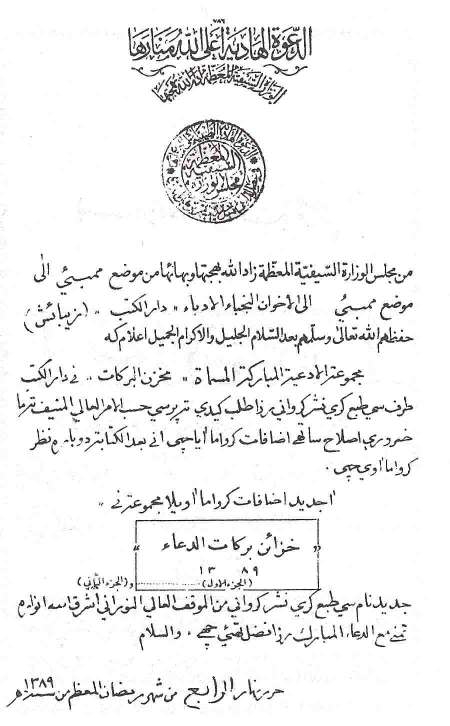 ٧٨٦
الدعوة الهادية اعلى الله منارها
الوزارة السيفية المعظمة زاد الله بهجتها
السيفية المعظمة
مجلس الوزارة
من مجلس الوزارة السيفية المعظمة زاد الله بهجتها وبهائها من موضع ممبئي الى
موضع ممبئي الى الاخوان النجباء الادباء " دار الكتب " (زيبائش)
حفظهم الله تعالى وسلمهم بعد السلام الجليل والاكرام الجميل اعلام كه
مجموعة الادعية المباركة المسماة " مخزن البركات " نے دار الكتب
طرف سي طبع كري نشر كرواني رزا طلب كيدي تر پرسي حسب الامر العالي المنيف ترما
ضروري اصلاح ساتھے اضافات كرواما ايا چهي انے بعد الكتابة دوباره نظر
كرواما اوي چهي .
ا جديد اضافات كرواما اويلا مجموعة نے "
" خزائن بركات الدعاء "
١٣ ٨٩
(الجزء الاول) ............ و (الجزء الثاني)
جديد نام سي طبع كري نشر كرواني من الموقف العالي النوراني اشرق الله انواره
تمنے مع الدعاء المبارك رزا فضل تهئي چهے . والسلام
حرر نهار الرابع من شهر رمضان المعظم من سنة ١٣٨٩ھ